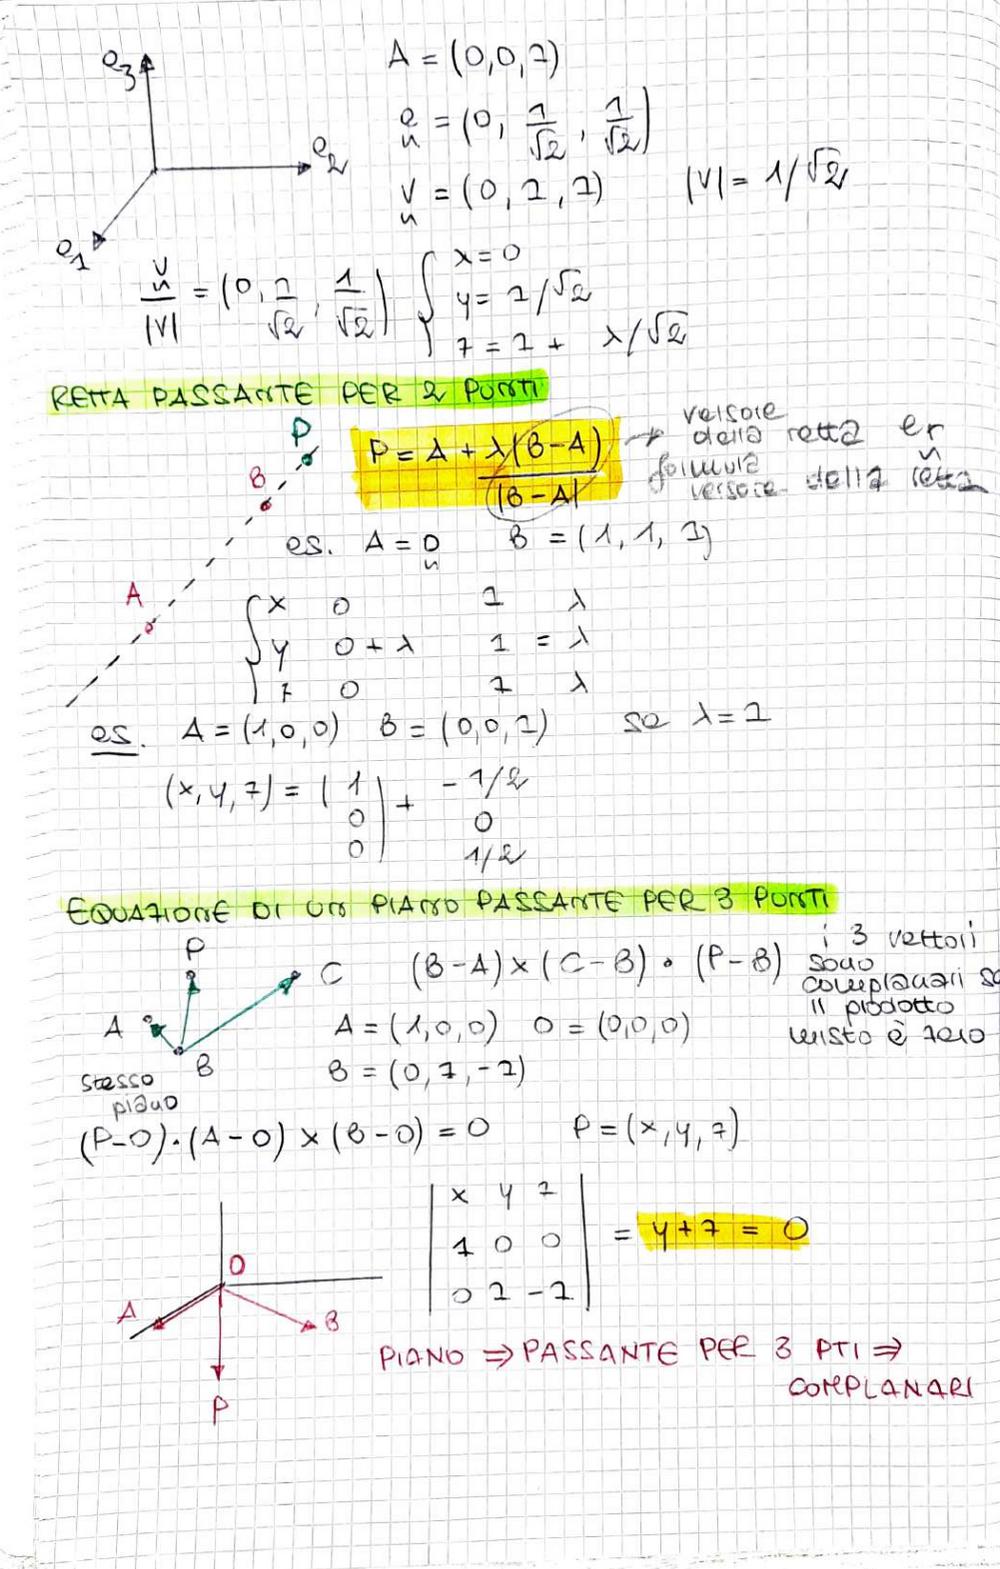 e3
e2
e1
A = (0,0,1)
e = (0, 1/√2, 1/√2)
v = (0, 1, 1) |v| = 1/√2
v/|v| = (0, 1/√2, 1/√2) { x = 0
y = λ/√2
z = 1 + λ/√2
RETTA PASSANTE PER 2 PUNTI
P
B
A
P = A + λ(B-A)/|B-A| → versore
della retta er
formula
versore della retta
es. A = 0 B = (1, 1, 1)
{ x 0 1 λ
y 0 + λ 1 = λ
z 0 1 λ
es. A = (1,0,0) B = (0,0,1) se λ = 1
(x,y,z) = (1 0 0) + -1/2
0
1/2
EQUAZIONE DI UN PIANO PASSANTE PER 3 PUNTI
P
C
A
B
stesso
piano
(B-A) × (C-B) • (P-B)
i 3 vettori
sono
complanari se
il prodotto
misto è zero
A = (1,0,0) O = (0,0,0)
B = (0,1,-1)
(P-O)•(A-O) × (B-O) = 0 P = (x,y,z)
| x y z |
| 1 0 0 | = y + z = 0
| 0 1 -1 |
O
A
B
P
PIANO ⇒ PASSANTE PER 3 PTI ⇒
COMPLANARI